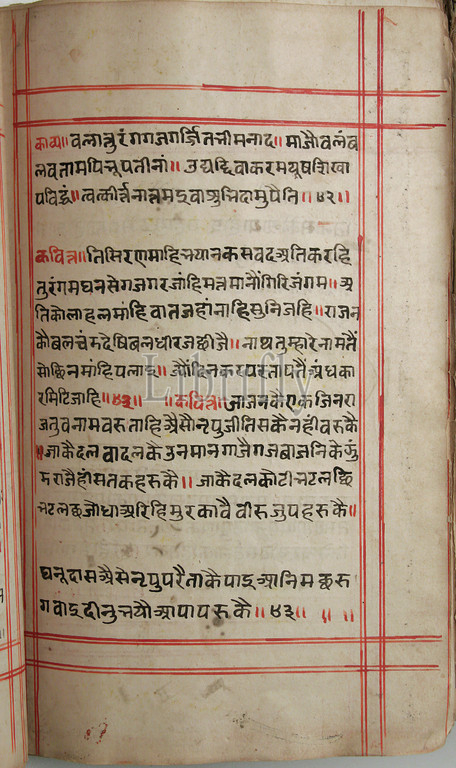 काव्य॥ वल्गत्तुरंगगजगर्जितभीमनाद॥ माजौबलंब
लवतामपिभूपतीनां॥ उद्यद्दिवाकरमयूषशिखा
पविद्धं॥ त्वत्कीर्त्तनात्तमइवाशुभिदामुपैति॥४२॥
कवित्त॥ तिसिरणमाहिभयानकसवदअतिकरहि
तुरंगमघनसेगजगरजांहिमत्तमानौंगिरिजंगम॥ अ
तिकोलाहलमांहिवातजहांनाहिसुनिजहि॥ राजन
कौबलचंमदेषिबलधीरजछीजै॥ नाथतुम्हारेनामतैं
सोछिनमांहिपलाइ॥ ज्यौंदिनकरपरतापतैंअंधका
रमिटिजाहि॥४३॥ ॥कवित्त॥ जाजनकैएकजिनरा
जतुवनामवरुताहिअैसौनृपुजीतिसकैनहींवरुकै
॥ जाकेदलवादलकैउनमानगाजैगजबाजनिकेझुं
मराजैहींसतकहरुकै॥ जाकेदलकोटीभटलछि
भटलछजोधाअरिहिमुरकावैवीरुजुपहरुकै॥
घनूदासअैसेनृपुपरैताकैपाइआनिमछरु
गवाइदीनुभयोआपापरुकै॥४३॥ ॥ ॥
Librifly